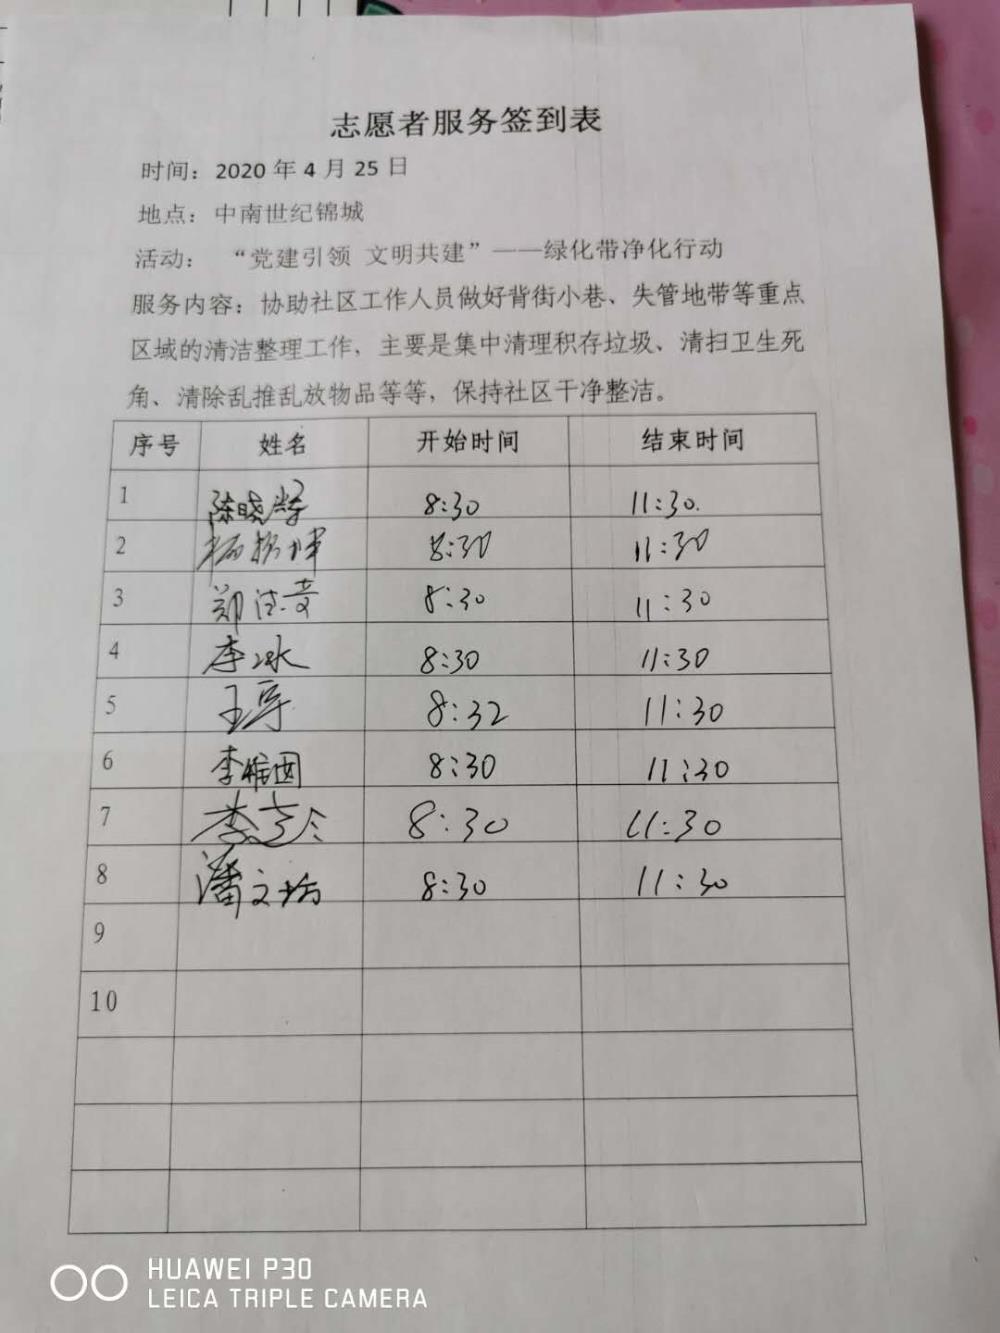 志愿者服务签到表
时间：2020 年 4 月 25 日
地点：中南世纪锦城
活动： “党建引领 文明共建”——绿化带净化行动
服务内容：协助社区工作人员做好背街小巷、失管地带等重点
区域的清洁整理工作，主要是集中清理积存垃圾、清扫卫生死
角、清除乱推乱放物品等等，保持社区干净整洁。
序号 姓名 开始时间 结束时间
1 陈晓 8:30 11:30.
2 8:30 11:30
3 郑 8:30 11:30
4 李冰 8:30 11:30
5 王 8:32 11:30
6 李 8:30 11:30
7 李 8:30 11:30
8 潘文 8:30 11:30
9
10
HUAWEI P30
LEICA TRIPLE CAMERA